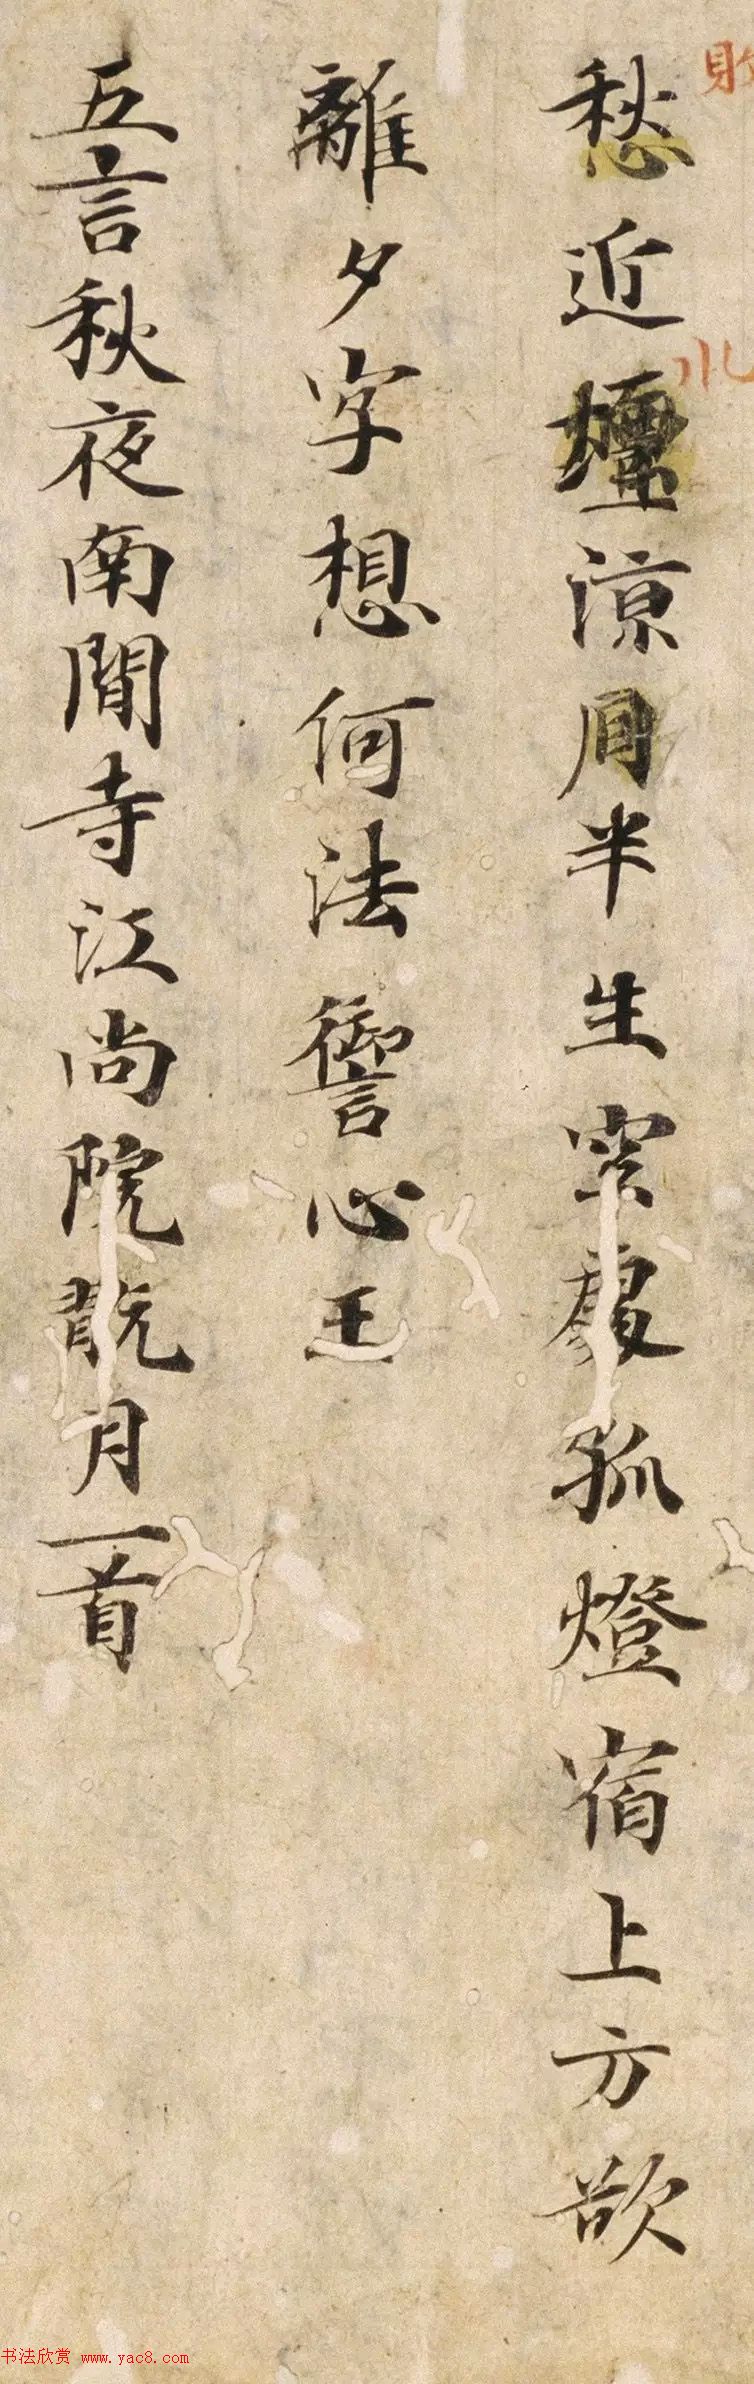 愁近煙涼月半生空處孤燈宿上方欲
離夕字想何法御言心王
五言秋夜南閒寺江尚院翫月一首
书法欣赏 www.yac8.com